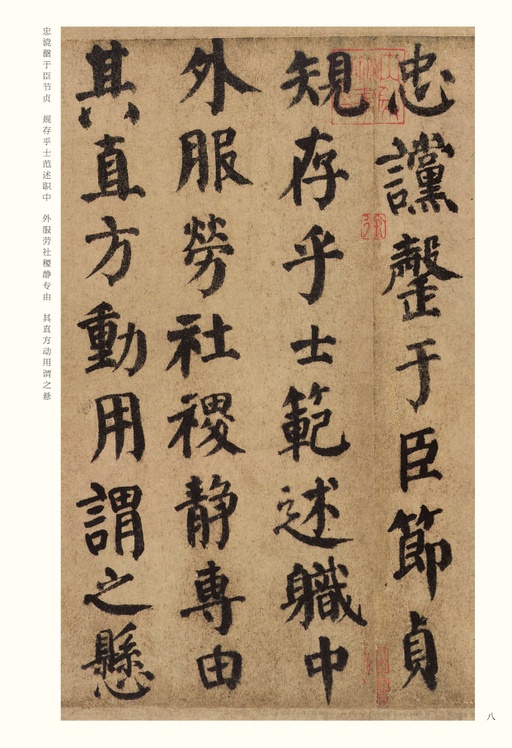 忠讜罄于臣節貞
規存乎士範述職中
外服勞社稷静専由
其直方動用謂之懸
忠谠罄于臣节贞　规存乎士范述职中　外服劳社稷静专由　其直方动用谓之悬
八